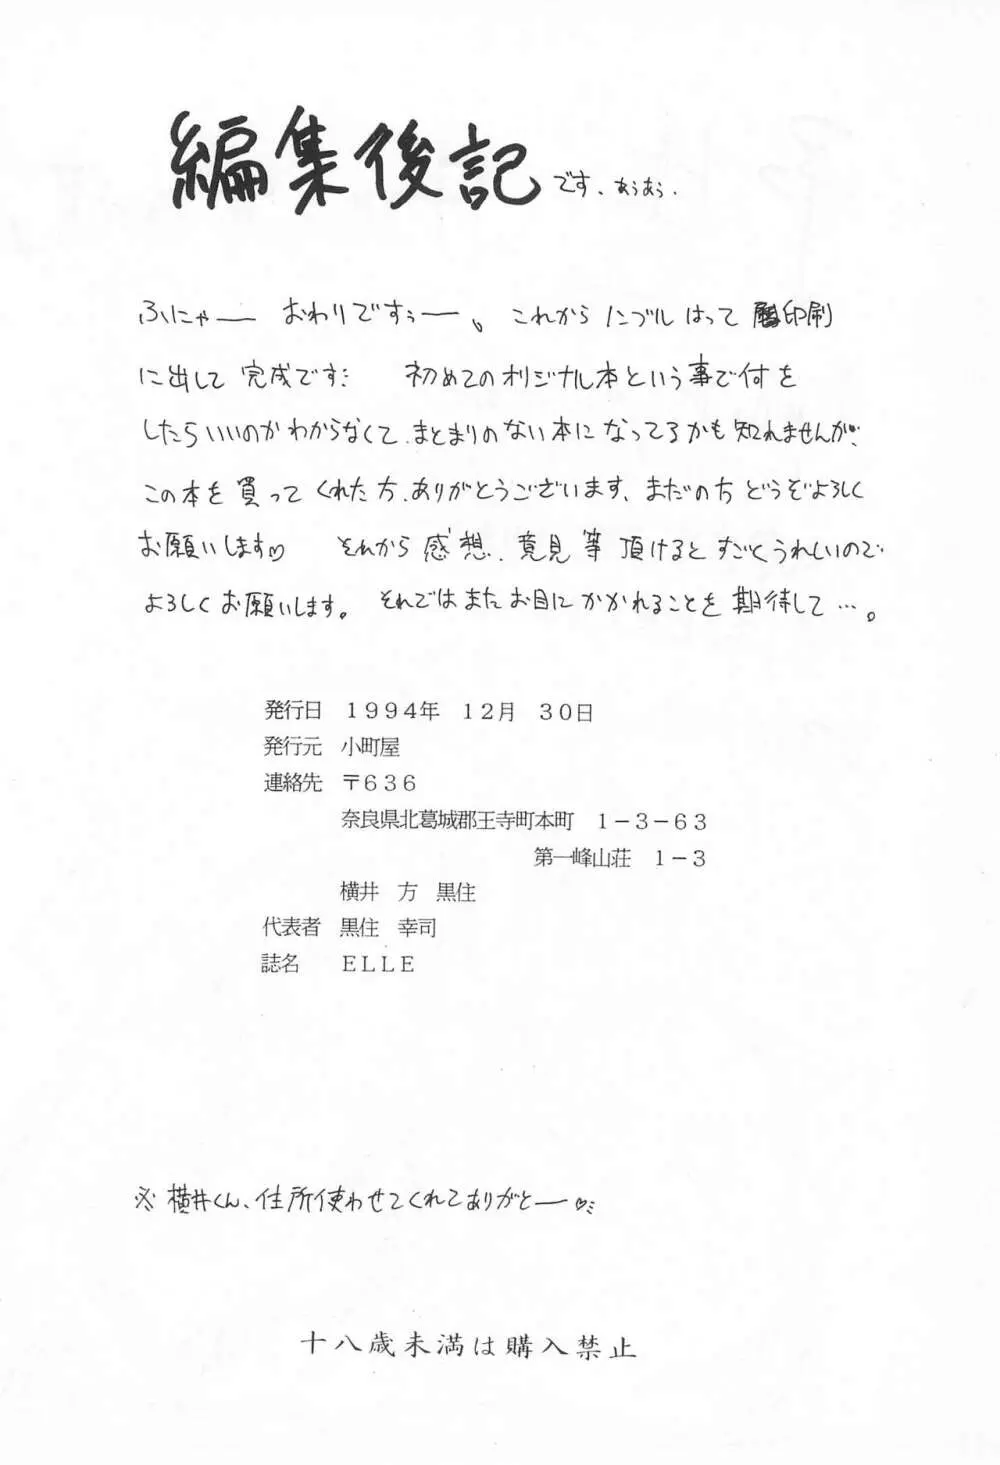 編集後記です、あぅあぅ.
ふにゃー おわりですぅー。これからノンブルはって印刷
に出して完成です 初めてのオリジナル本という事で何を
したらいいのかわからなくて、まとまりのない本になってるかも知れませんが
この本を買ってくれた方、ありがとうございます、まだの方どうぞよろしく
お願いします♡ それから感想、意見等頂けるとすごくうれしいので
よろしくお願いします。それではまたお目にかかれることを期待して…。
発行日 1994年 12月 30日
発行元 小町屋
連絡先 〒636
奈良県北葛城郡王寺町本町 1-3-63
第一峰山荘 1-3
横井 方 黒住
代表者 黒住 幸司
誌名 ELLE
※横井くん、住所使わせてくれてありがとー♡
十八歳未満は購入禁止